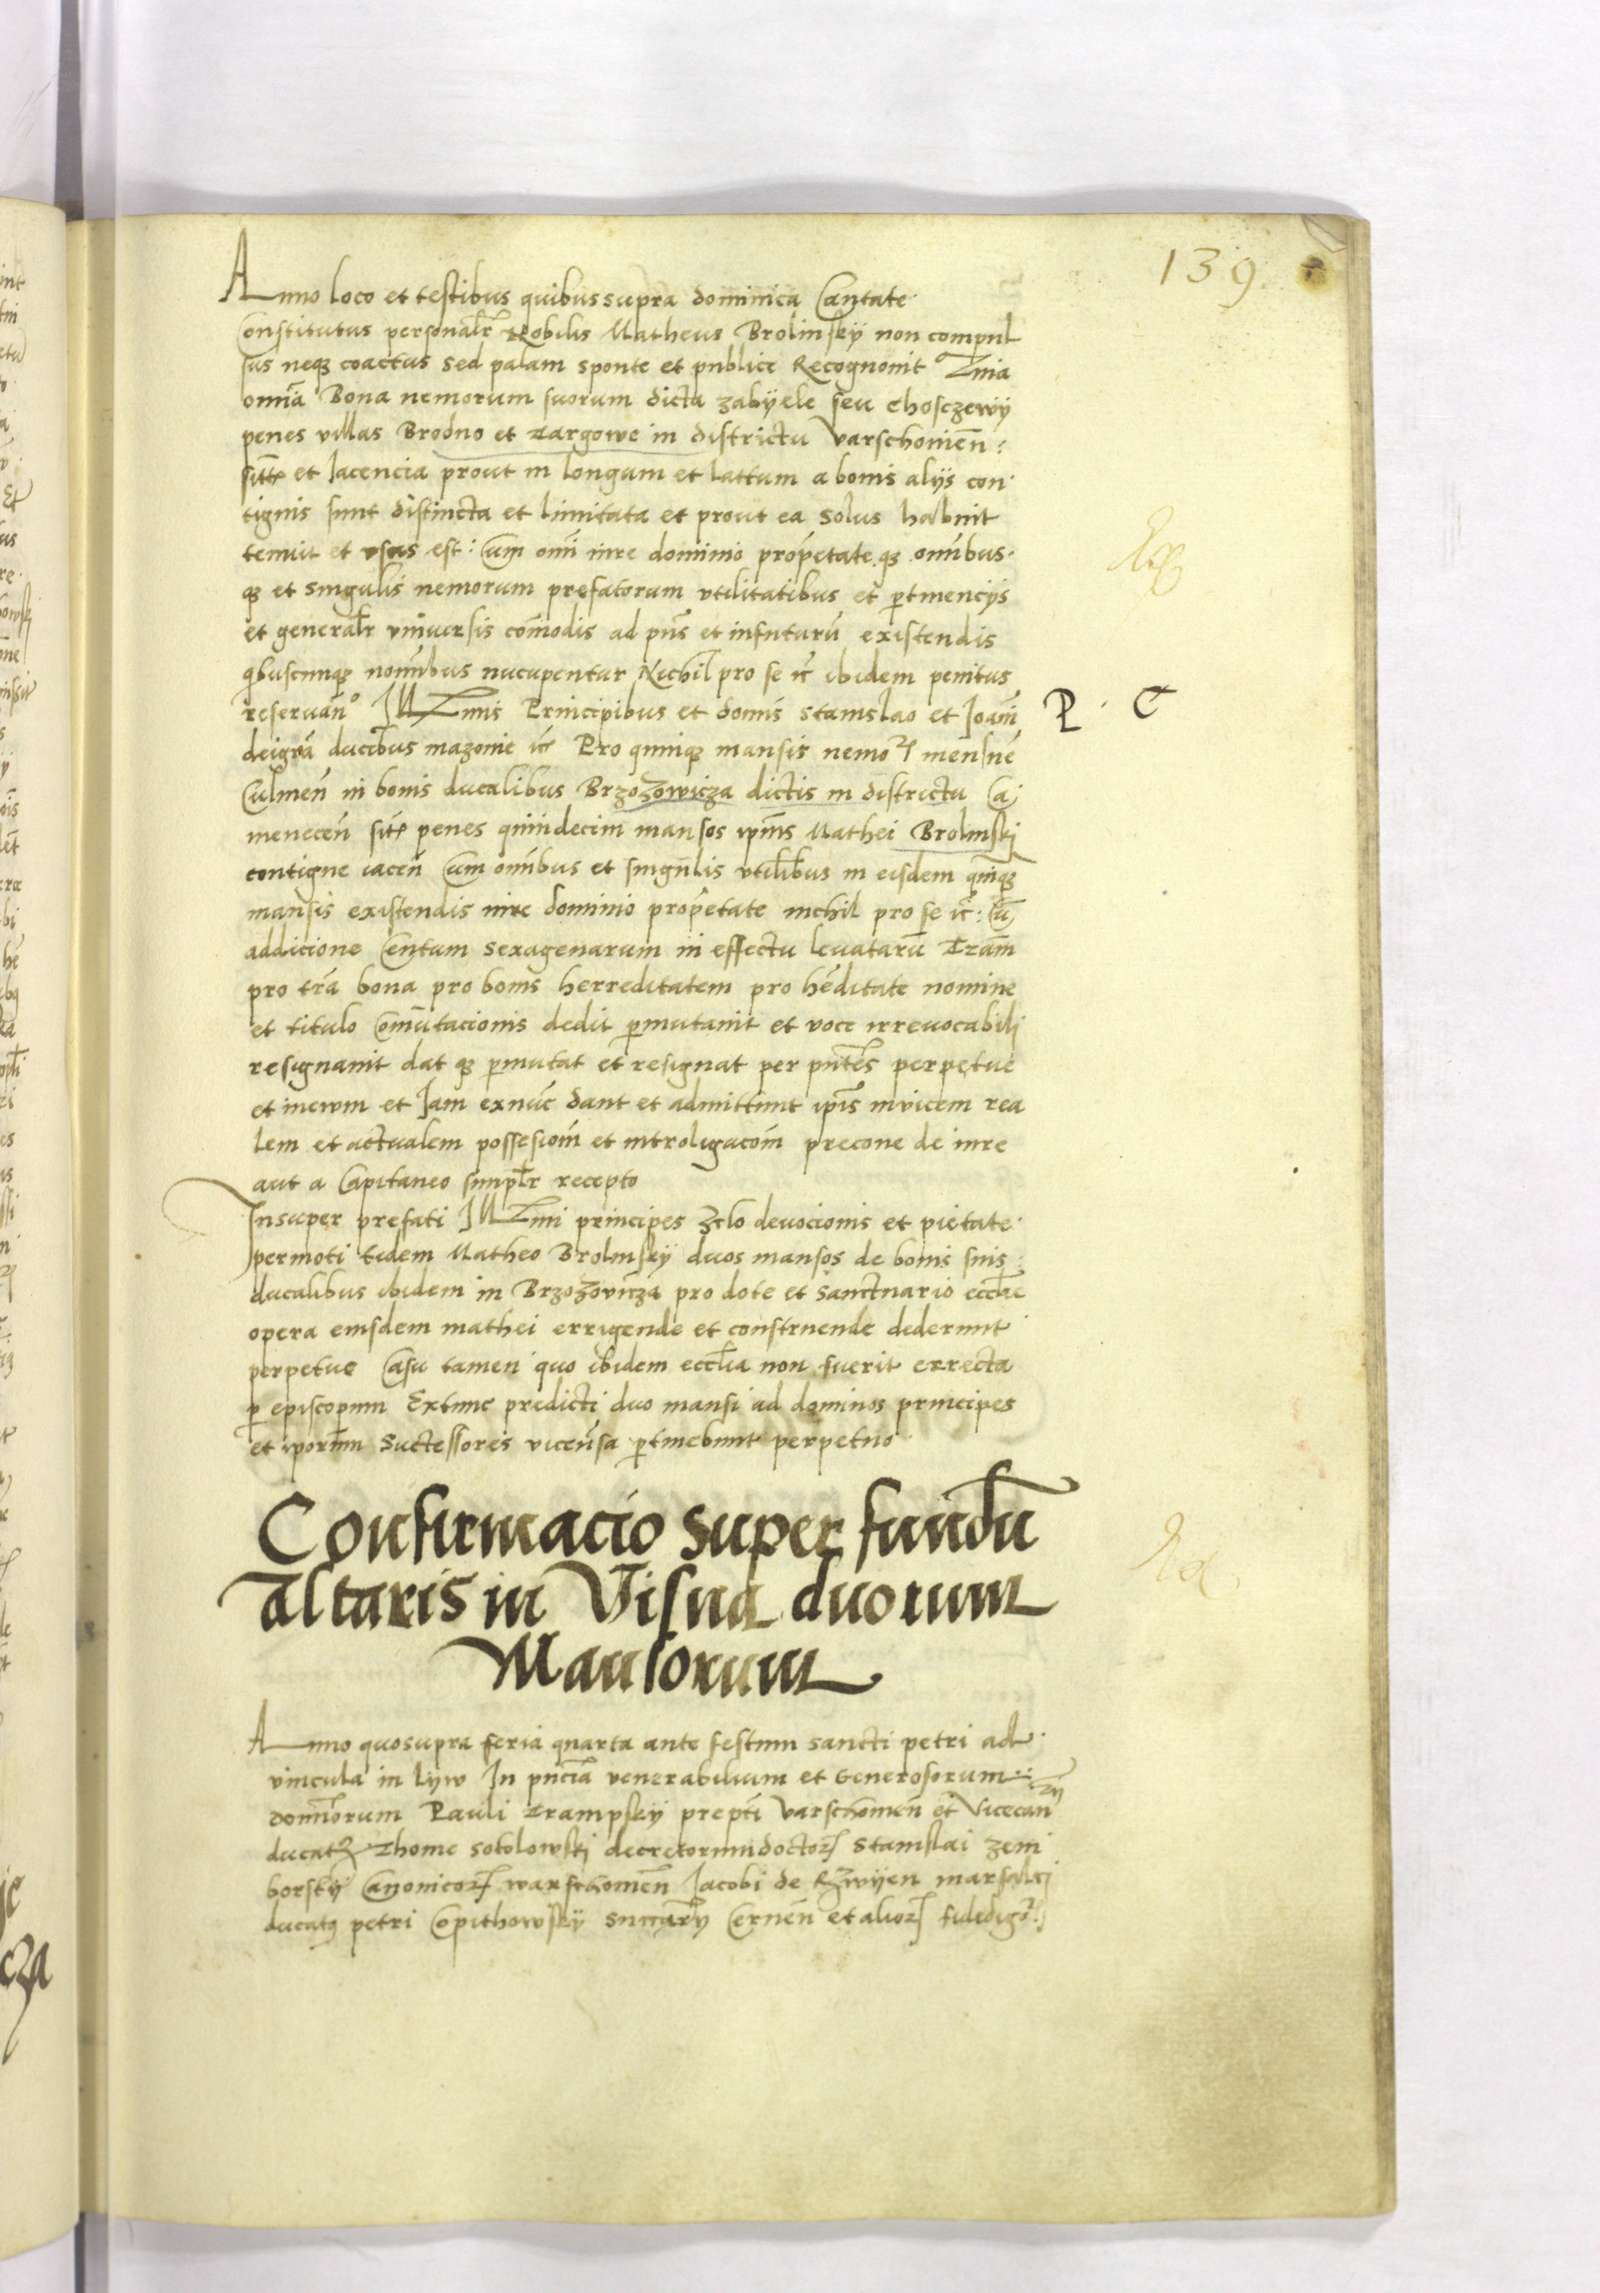 139.
Anno loco et testibus quibus supra dominica Cantate
Constitutus personalr̃ Nobilis Matheus Brolinskÿ non compul
sus neqꝫ coactus sed palam sponte et publice Recognouit
omnia Bona nemorum suorum dicta zabÿele seu chosczewÿ
penes villas Brodno et Targowe in districtu Varschouien̄ :
sitē et Iacencia prout in longum et lattum a bonis alijs con
tiguis sunt distincta et limitata et prout ea solus habuit
tenuit et vsus est : Cum om̄i iure dominio propͥetate qꝫ om̄ibus
qꝫ et singulis nemorum prefatorum vtilitatibus et ꝑtinencijs
et generalr̃ vniuersis com̄odis ad pn̄s et infuturū existendis
qͥbuscunqꝫ nom̄ibus nucupentur Nichil pro se ic̄ ibidem penitus
reseruan̄º Illmis Principibus et dom̄is Stanislao et Ioan̄i
dei gr̄a ducibus mazouie ic̄ Pro quinqꝫ mansis nemoꝝ mensur̄e
Culmen̄ in bonis ducalibus Brzozowicza dictis in districtu Ca
menecen̄ sitꝭ penes quindecim mansos ipīus Mathei Brolinski
contigue iacen̄ Cum om̄ibus et singulis vtilībus in eisdem quīqꝫ
mansis existendis iure dominio propͥetate nichil pro se ic̄ : Cū
addicione Centum sexagenarum in effectu leuatarū Trām
pro tr̄a bona pro bonis herreditatem pro hēditate nomine
et titulo com̄utacionis dedit ꝑmutauit et voce irreuocabili
resignauit dat qꝫ ꝑmutat et resignat per pn̄tes perpetue
et in ewm et Iam exnūc dant et admittunt ip̄is inuicem rea
lem et actualem possesiōm et introligacōm precone de iure
aut a Capitaneo simplr̃ recepto
P · C
Insuper prefati Illmi principes zelo deuocionis et pietate
permoti Eidem Matheo Brolinskÿ duos mansos de bonis suis
ducalibus ibidem in Brzozovicza pro dote et sanctuario eccl̄ie
opera eiusdem mathei errigende et construende dederunt
perpetue Casu tamen quo ibidem eccl̄ia non fuerit errecta
ꝑ episcopum Extunc predicti duo mansi ad dominos principes
et ip̄orum Successores vicēuersa ꝑtinebunt perpetuo
Confirmacio super fundū
altaris in Visna duorum
Mansorum
Anno quosupra feria quarta ante festum sancti petri ad
vincula in Lyw In pn̄cia venerabilium et Generosorum
domīorum Pauli Trampskÿ prepti Varschouien̄ et Vicecan
ducatꝫ Thome Sokolowski decretorum doctoꝝ Stanislai Zem
borskÿ Canonicoꝝ warschouien̄ Iacobi de Rzwÿen marsalci
ducatꝫ petri Copithowskÿ Succarÿ Cernen̄ et alioꝝ fidedigoꝝ